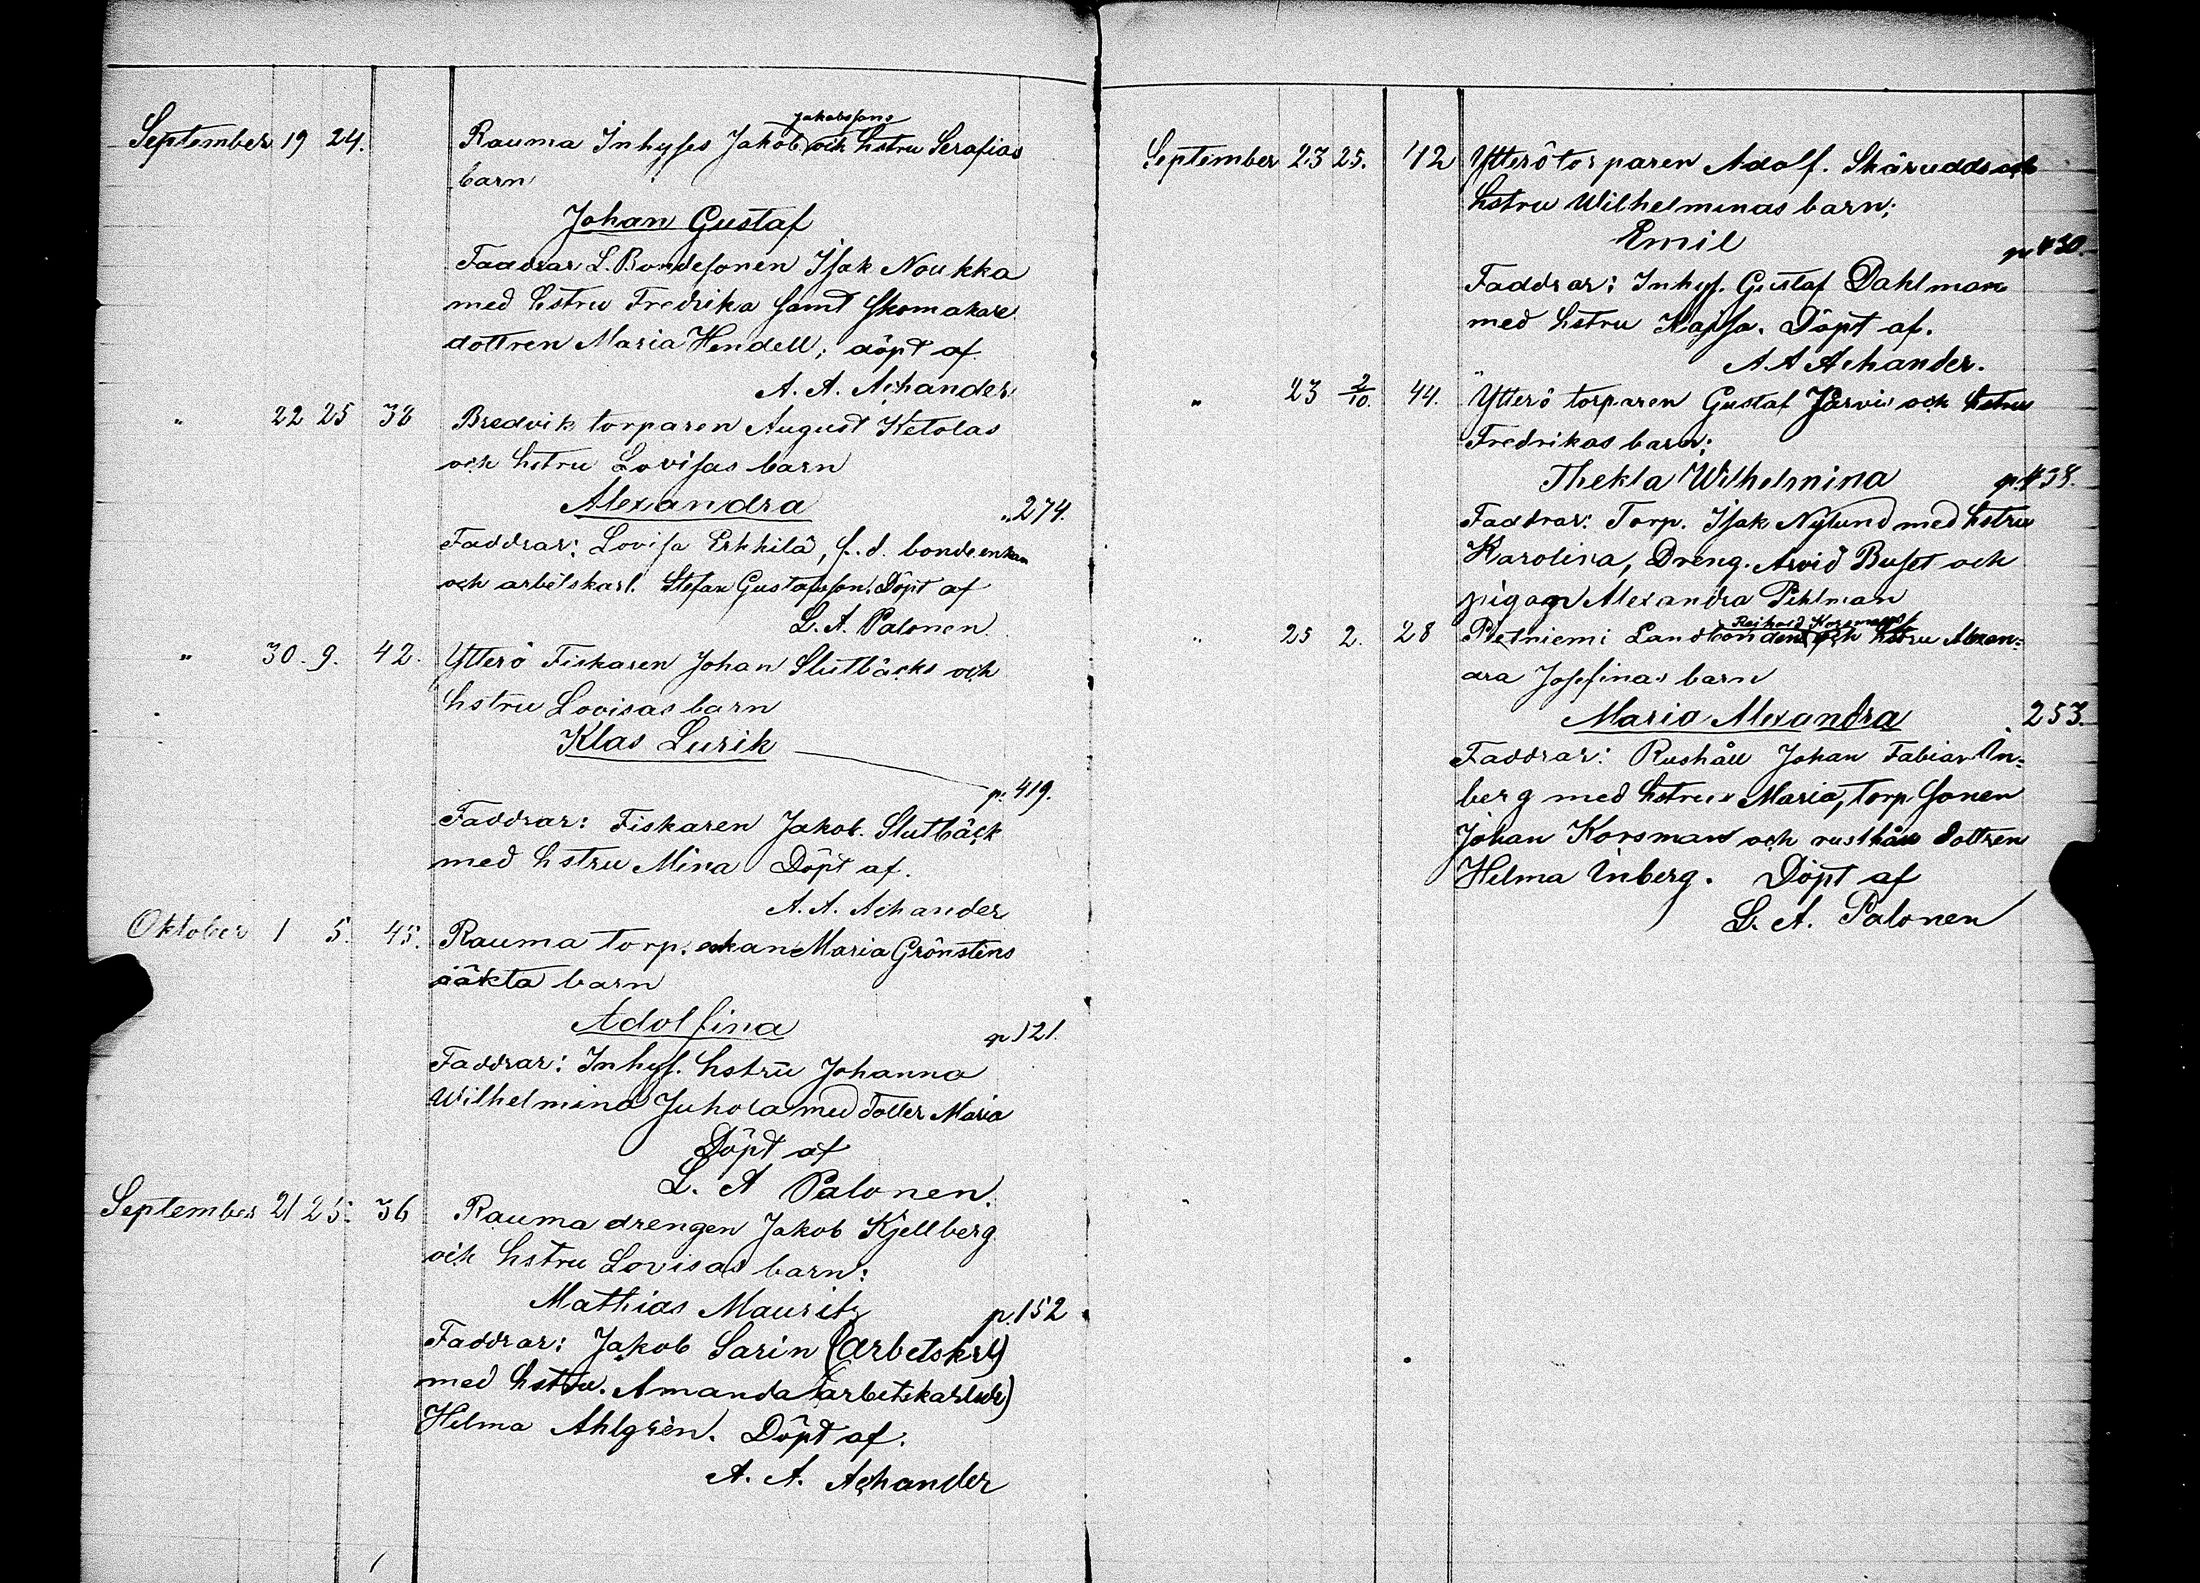 September 19 24. Rauma Inhyses Jakob Jakobssons och hstru Serafias
barn
Johan Gustaf
Faddrar L. Bondesonen Isak Noukka
med hstru Fredrika samt skomakare
dottren Maria Hendell; döpt af
A. A. Achander
" 22 25 38 Bredvik torparen August Ketolas
och hstru Lovisas barn
Alexandra " 274.
Faddrar: Lovisa Erkkilä, f. d. bonde enkan
och arbetskarl. Stefan Gustafsson. Döpt af
L. A. Palonen.
" 30. 9. 42. Ytterö Fiskaren Johan Slutbäcks och
hstru Lovisas barn
Klas Lurik
p. 419.
Faddrar: Fiskaren Jakob. Slutbäck
med hstru Mina Döpt af.
A. A. Achander
Oktober 1 5. 45. Rauma torp. enkan Maria Grönstens
oäkta barn
Adolfina p 121.
Faddrar: Inhys. hstru Johanna
Wilhelmina Juhola med dotter Maria
Döpt af
L. A Palonen.
September 21 25. 36 Rauma drengen Jakob Kjellberg
och hstru Lovisas barn:
Mathias Mauritz p. 152
Faddrar: Jakob Sarin (Arbetskrl)
med hstru. Amanda
Helma Ahlgrèn. Döpt af.
A. A. Achander
September 23 25. 42 Ytterö torparen Adolf. Skärudds och
hstru Wilhelminas barn;
Emil p 430.
Faddrar: Inhys. Gustaf Dahlman
med hstru Kajsa. Döpt af.
A. A Achander.
" 23 2/10. 44. Ytterö torparen Gustaf Järvis och hstru
Fredrikas barn;
Thekla Wilhelmina p. 438.
Faddrar: Torp. Isak Nylund med hstru
Karolina, Dreng. Arvid Buset och
pigan Alexandra Pihlman
" 25 2. 28 Pietniemi Landbonden Reihold Korsmans och hstru Alexan=
dra Josefinas barn
Maria Alexandra 253.
Faddrar: Rushåll Johan Fabian In=
berg med hstru Maria, torp sonen
Johan Korsman och rusthåll dottren
Helma Inberg. Döpt af
L. A. Palonen